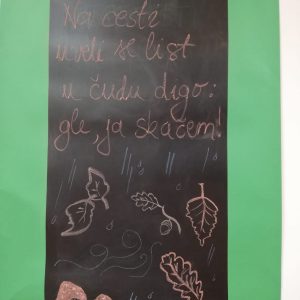 Na cesti
uveli se list
u čudu digo:
gle, ja skačem!